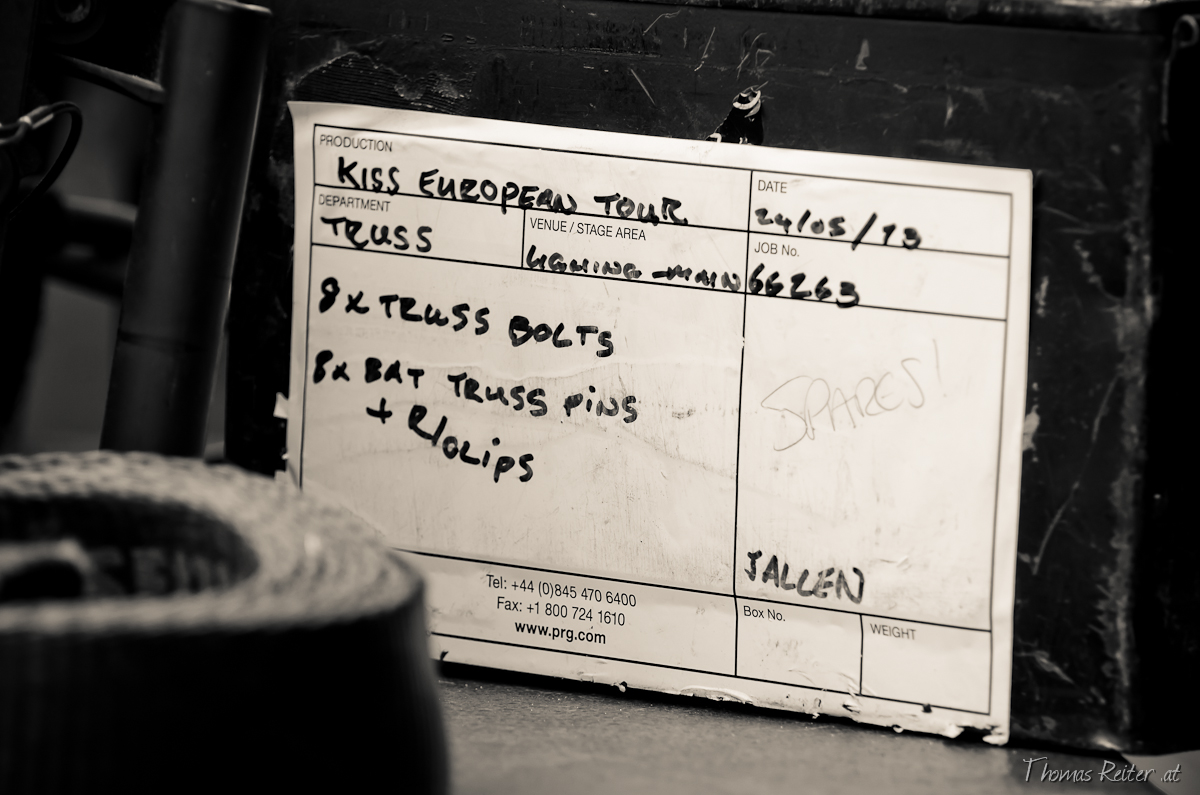 PRODUCTION
KISS EUROPEAN TOUR
DATE
24/05/13
DEPARTMENT
TRUSS
VENUE / STAGE AREA
LIGHTING - MAIN
JOB No.
66263
8x TRUSS BOLTS
8x BAT TRUSS PINS
+ R/CLIPS
SPARES!
JALLEN
Tel: +44 (0)845 470 6400
Fax: +1 800 724 1610
www.prg.com
Box No.
WEIGHT
Thomas Reiter .at